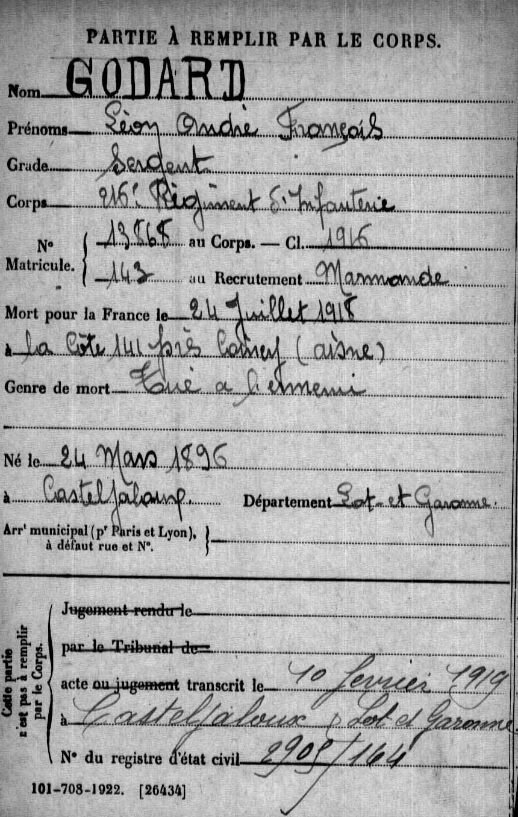 PARTIE À REMPLIR PAR LE CORPS.
Nom GODARD
Prénoms Léon André François
Grade Sergent
Corps 216e Régiment d'Infanterie
N° 13868 au Corps. — Cl. 1916
Matricule. 143 au Recrutement Marmande
Mort pour la France le 24 Juillet 1918
à la Côte 141 près Coincy (aisne)
Genre de mort Tué a l'ennemi
Né le 24 Mars 1896
à Casteljaloux. Département Lot-et Garonne.
Arrt municipal (pr Paris et Lyon),
à défaut rue et N°.
Cette partie
n'est pas à remplir
par le Corps.
Jugement rendu le
par le Tribunal de
acte ou jugement transcrit le 10 fevrier 1919
à Casteljaloux, Lot et Garonne
N° du registre d'état civil 2905/164
101-708-1922. [26434]